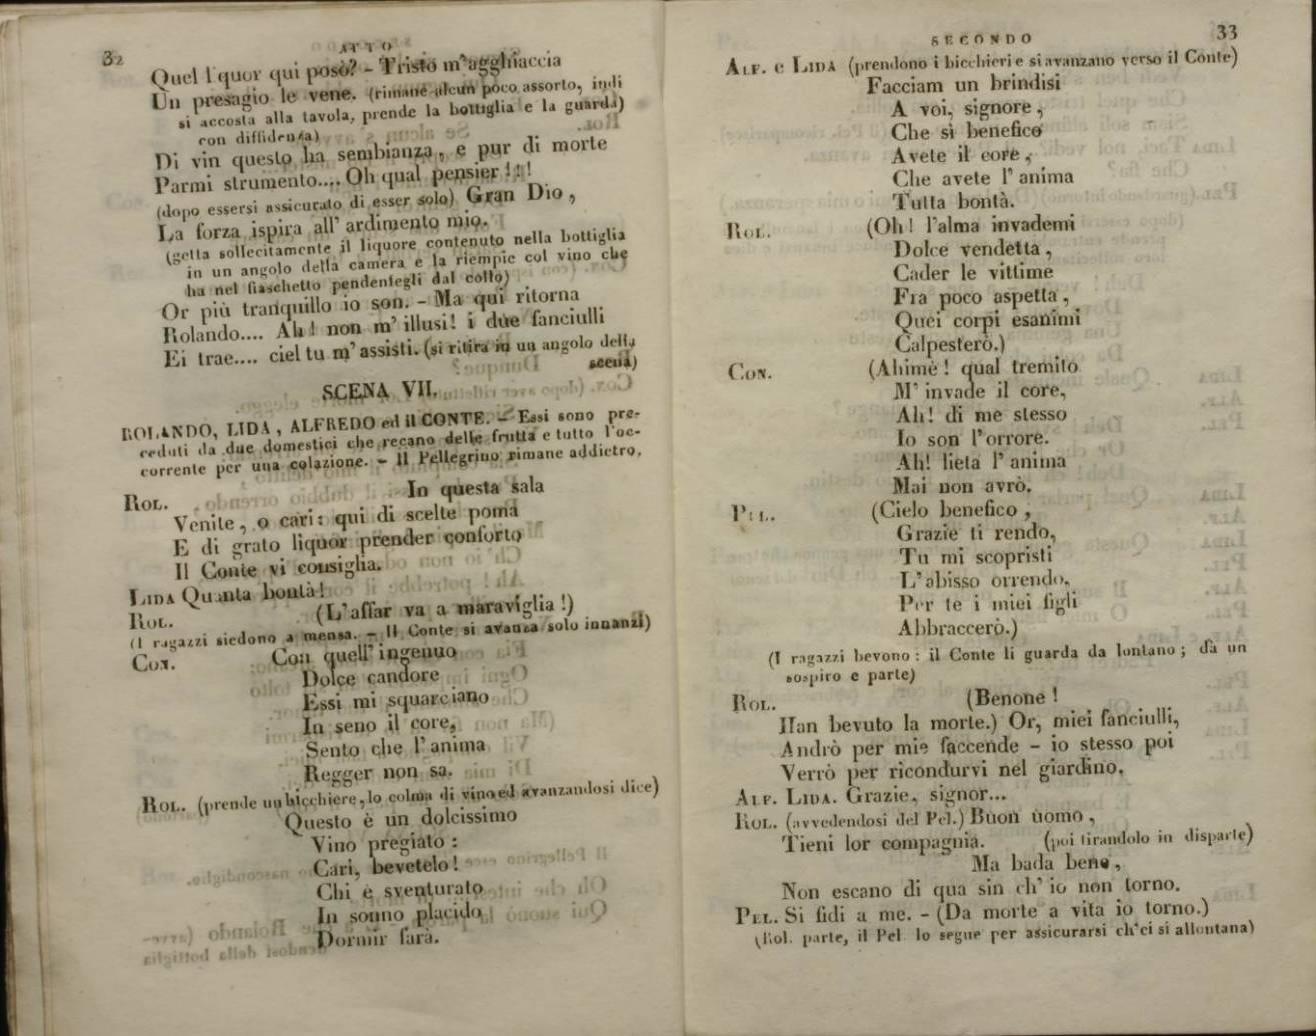 32
ATTO
Quel l quor qui posò? - Tristo m'agghiaccia
Un presagio le vene. (rimane alcun poco assorto, indi
si accosta alla tavola, prende la bottiglia e la guarda)
con diffidenza)
Di vin questo ha sembianza, e pur di morte
Parmi strumento.... Oh qual pensier!!!
(dopo essersi assicurato di esser solo) Gran Dio,
La forza ispira all' ardimento mio.
(getta sollecitamente il liquore contenuto nella bottiglia
in un angolo della camera e la riempie col vino che
ha nel fiaschetto pendentegli dal collo)
Or più tranquillo io son. - Ma qui ritorna
Rolando.... Ah! non m' illusi! i due fanciulli
Ei trae.... ciel tu m'assisti. (si ritira in un angolo della
scena)
SCENA VII.
ROLANDO, LIDA, ALFREDO ed il CONTE. - Essi sono pre-
ceduti da due domestici che recano delle frutta e tutto l'oc-
corrente per una colazione. - Il Pellegrino rimane addietro.
ROL. In questa sala
Venite, o cari: qui di scelte poma
E di grato liquor prender conforto
Il Conte vi consiglia.
LIDA Quanta bontà!
ROL. (L'affar va a maraviglia!)
(I ragazzi siedono a mensa. - Il Conte si avanza solo innanzi)
CON. Con quell' ingenuo
Dolce candore
Essi mi squarciano
In seno il core,
Sento che l' anima
Regger non sa.
ROL. (prende un bicchiere, lo colma di vino ed avanzandosi dice)
Questo è un dolcissimo
Vino pregiato:
Cari, bevetelo!
Chi è sventurato
In sonno placido
Dormir farà.
SECONDO
33
ALF. e LIDA (prendono i bicchieri e si avanzano verso il Conte)
Facciam un brindisi
A voi, signore,
Che sì benefico
Avete il core,
Che avete l' anima
Tutta bontà.
ROL. (Oh! l'alma invademi
Dolce vendetta,
Cader le vittime
Fra poco aspetta,
Quei corpi esanimi
Calpesterò.)
CON. (Ahimè! qual tremito
M' invade il core,
Ah! di me stesso
Io son l'orrore.
Ah! lieta l' anima
Mai non avrò.
PEL. (Cielo benefico,
Grazie ti rendo,
Tu mi scopristi
L' abisso orrendo.
Per te i miei figli
Abbraccerò.)
(I ragazzi bevono: il Conte li guarda da lontano; dà un
sospiro e parte)
ROL. (Benone!
Han bevuto la morte.) Or, miei fanciulli,
Andrò per mie faccende - io stesso poi
Verrò per ricondurvi nel giardino.
ALF. LIDA. Grazie, signor...
ROL. (avvedendosi del Pel.) Buon uomo,
Tieni lor compagnia. (poi tirandolo in disparte)
Ma bada bene,
Non escano di qua sin ch' io non torno.
PEL. Si fidi a me. - (Da morte a vita io torno.)
(Rol. parte, il Pel. lo segue per assicurarsi ch'ei si allontana)